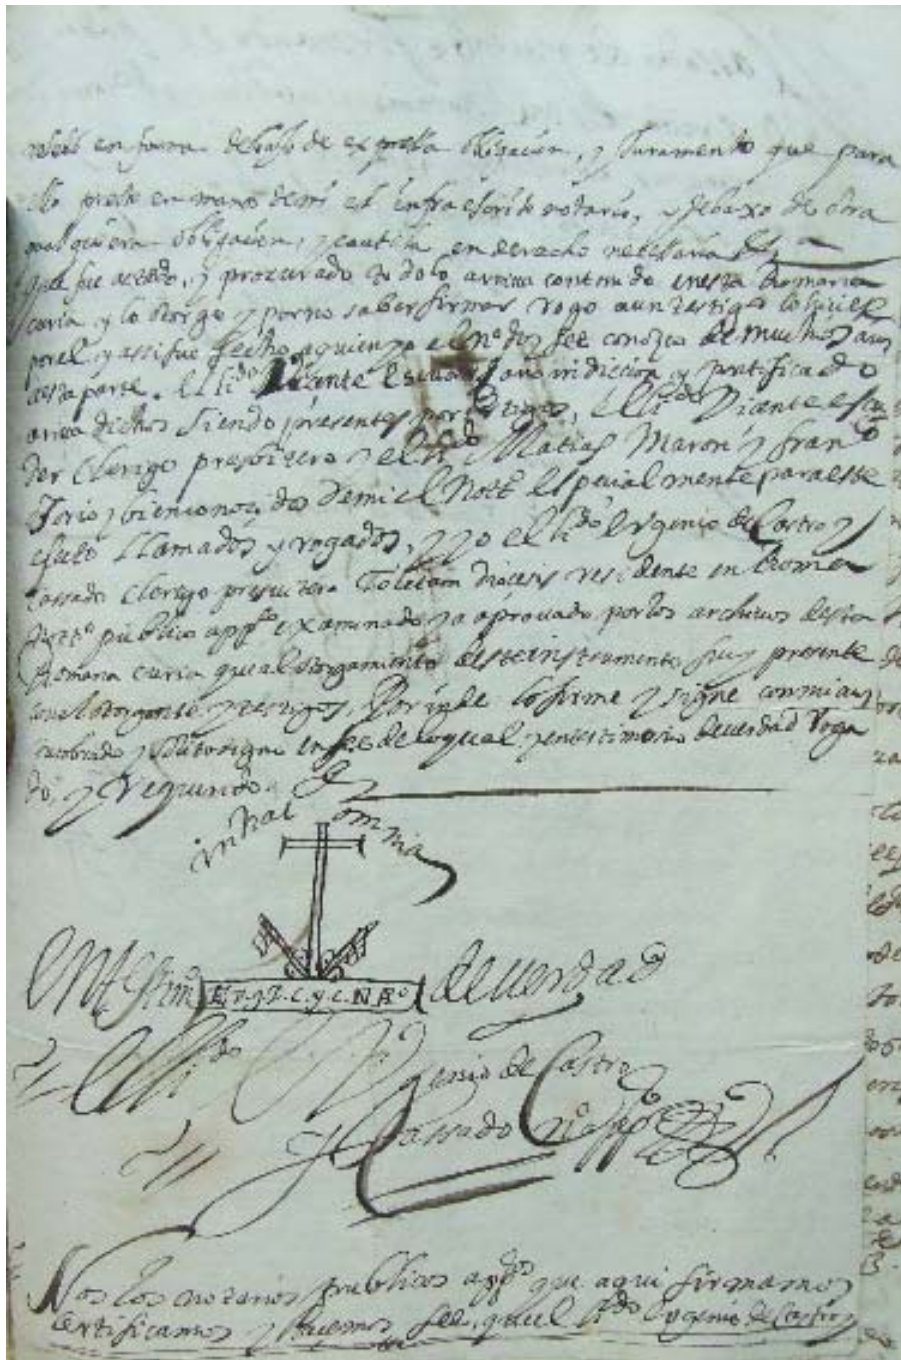 en forma debajo de expressa obligacion, y Juramento que para
ello presto en manos de mi el infraescrito notario, y debaxo de otra
qualquiera obligacion, y cautela en derecho necessaria
que fue acto, y procurado todo lo arriva contenido en esta Romana
curia y lo otorgo y por no saber firmar rogo a un testigo lo
por el y assi fue fecho, a quien yo el no doy fee conozco de muchos
a esta parte. el lido Vicente juridiccion, y pontificado
arriva dichos siendo presentes por testigos, el lido Vicente escu
der Clerigo presbitero y el lido Matias Maron y franco
Torio, y bien conoscidos de mi el Nott especialmente para este
efeto llamados y rogados, y yo el lido Eugenio de Castro y
cassado Clerigo presvitero Toletan diocesis residente en Roma
publico appco examinado y aprovado por los archivos desta
Romana curia que al otorgamiento deste instrumento fuy presente
con el otorgante y testigos, Por inde lo firme y signe con mi
nombre y en fee de lo qual y en testimonio de verdad Roga
do, y Requirido.
in hac omnia
En testimo E. v. g. L. c. y c. N. Ao de verdad
El lido Eugenio de Castro
y Cassado no appco
Nos los notarios publicos appcos que aqui firmamos
certificamos y hacemos fee, que el lido Eugenio de Castro y